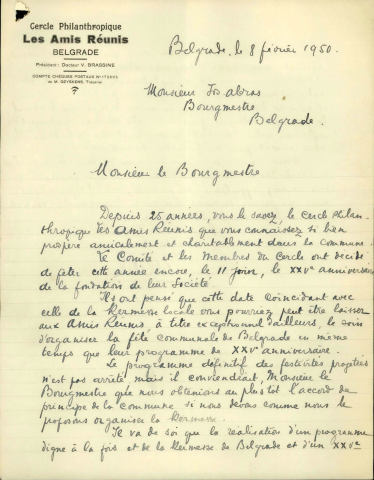 Cercle Philanthropique
Les Amis Réunis
BELGRADE
Président : Docteur V. BRASSINE
COMPTE CHÈQUES POSTAUX
de M. GEYSKENS, Trésorier
Belgrade, le 8 février 1950.
Monsieur
Bourgmestre
Belgrade.
Monsieur le Bourgmestre
Depuis 25 années, vous le savez, le Cercle Philan-
thropique Les Amis Réunis que vous connaissez si bien
prospère amicalement et charitablement dans la commune.
Le Comité et les Membres du Cercle ont décidé
de fêter cette année encore, le 11 , le XXVe anniversaire
de la fondation de leur Société.
Ils ont pensé que cette date coincidant avec
celle de la Kermesse locale vous pourriez peut être laisser
aux Amis Réunis, à titre exceptionnel d'ailleurs, le soin
d'organiser la fête communale de Belgrade en même
temps que leur programme de XXVe anniversaire.
Le programme définitif des festivités projetées
n'est pas arrêté mais il conviendrait, Monsieur le
Bourgmestre que nous obtenions au plus tôt l'accord de
principe de la commune si nous devons comme nous le
proposons organiser la Kermesse.
Il va de soi que la réalisation d'un programme
digne à la fois et de la Kermesse de Belgrade et d'un XXVe